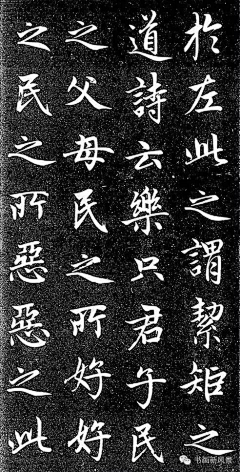 於左此之謂絜矩之
道詩云樂只君子民
之父母民之所好好
之民之所惡惡之此
书画新风景